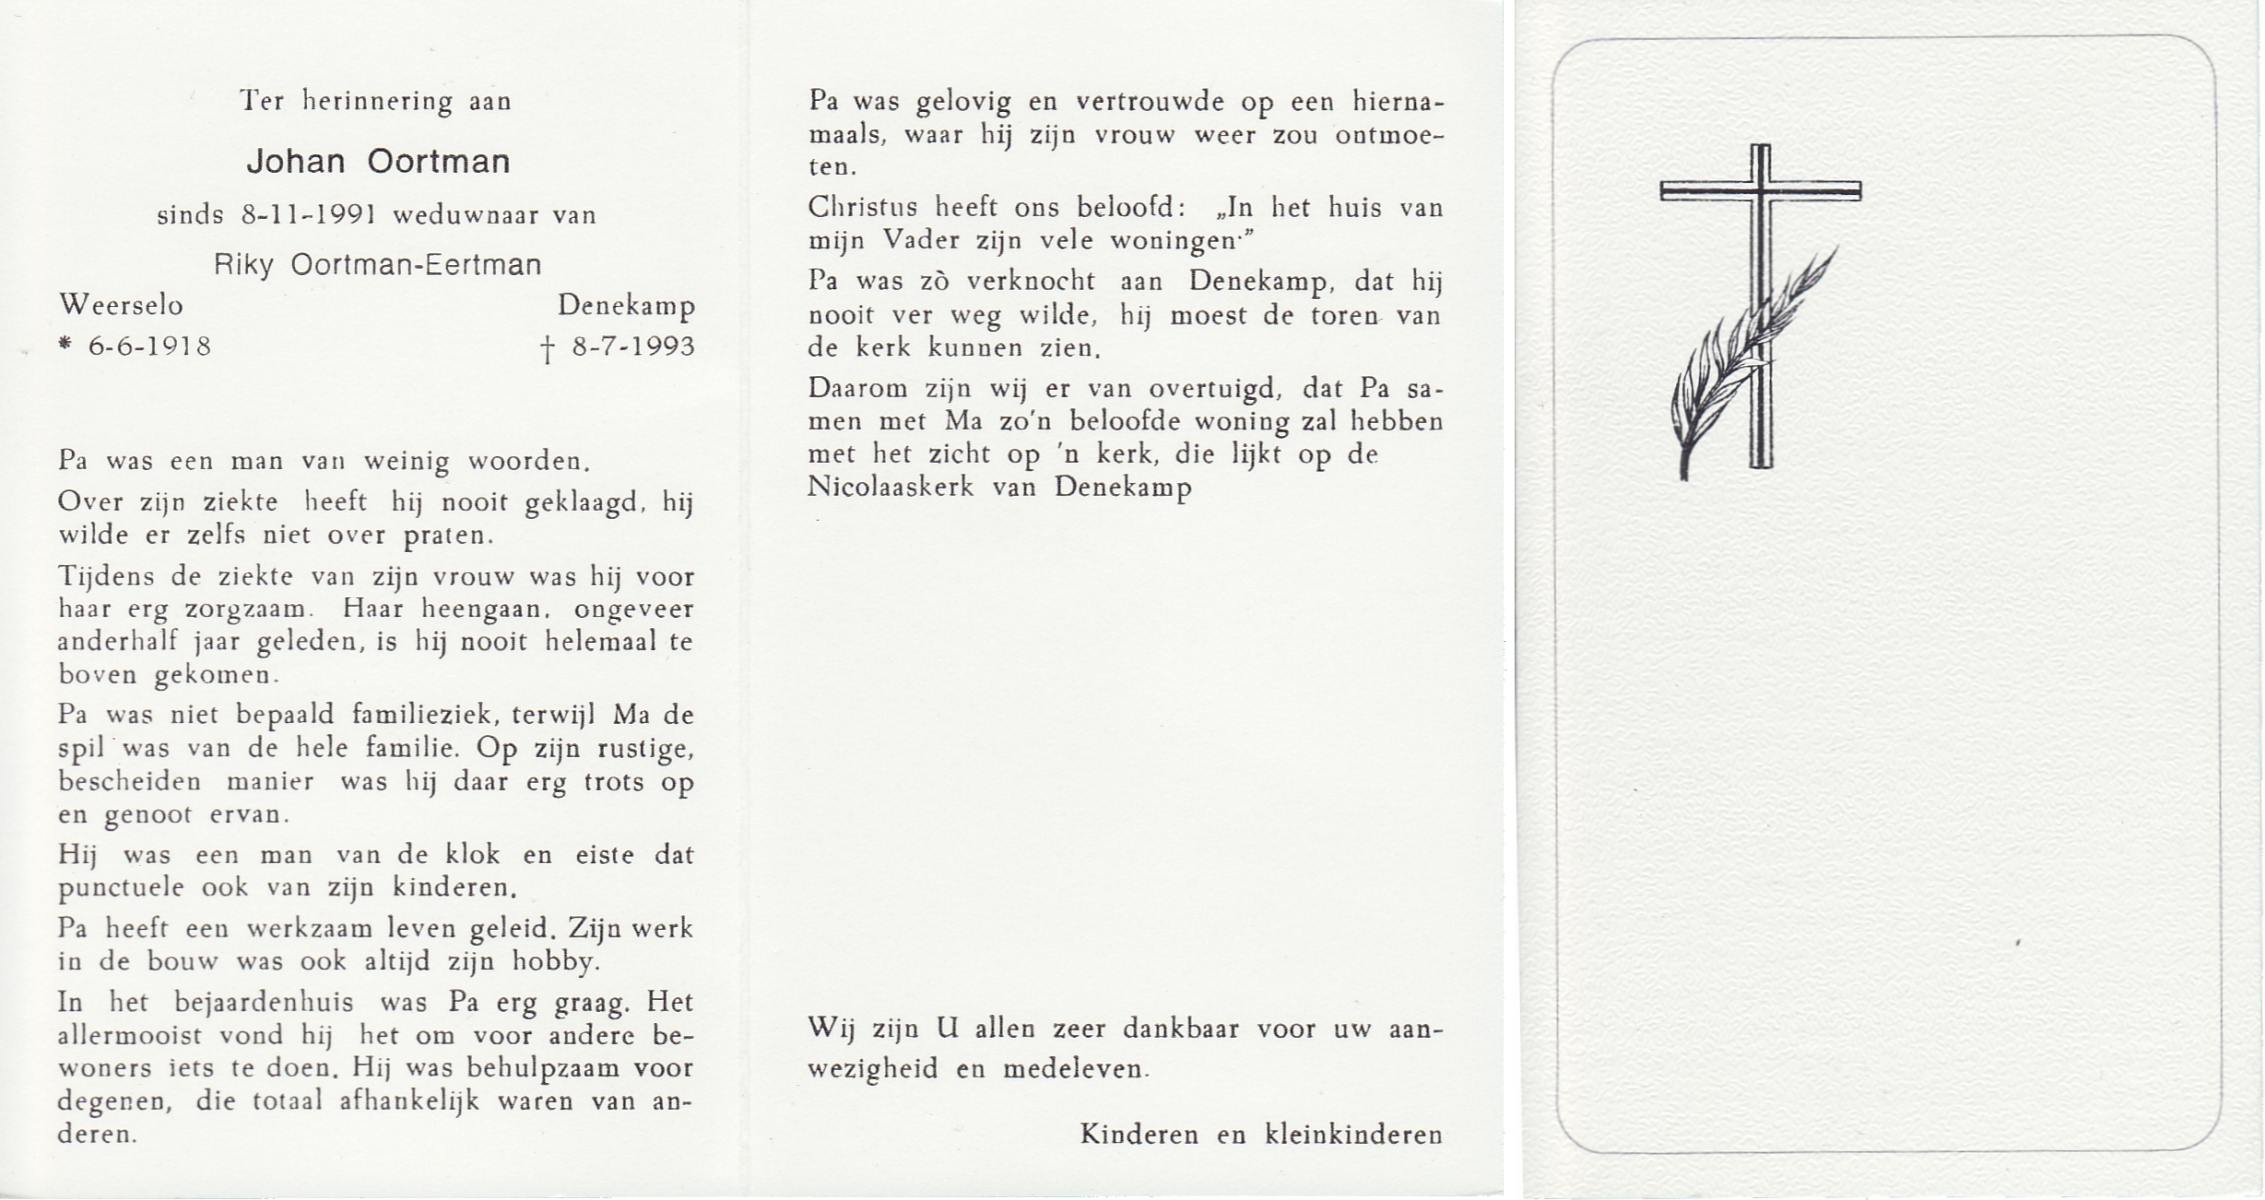 Ter herinnering aan
Johan Oortman
sinds 8-11-1991 weduwnaar van
Riky Oortman-Eertman
Weerselo Denekamp
* 6-6-1918 † 8-7-1993
Pa was een man van weinig woorden.
Over zijn ziekte heeft hij nooit geklaagd, hij
wilde er zelfs niet over praten.
Tijdens de ziekte van zijn vrouw was hij voor
haar erg zorgzaam. Haar heengaan, ongeveer
anderhalf jaar geleden, is hij nooit helemaal te
boven gekomen.
Pa was niet bepaald familieziek, terwijl Ma de
spil was van de hele familie. Op zijn rustige,
bescheiden manier was hij daar erg trots op
en genoot ervan.
Hij was een man van de klok en eiste dat
punctuele ook van zijn kinderen.
Pa heeft een werkzaam leven geleid. Zijn werk
in de bouw was ook altijd zijn hobby.
In het bejaardenhuis was Pa erg graag. Het
allermooist vond hij het om voor andere be-
woners iets te doen. Hij was behulpzaam voor
degenen, die totaal afhankelijk waren van an-
deren.
Pa was gelovig en vertrouwde op een hierna-
maals, waar hij zijn vrouw weer zou ontmoe-
ten.
Christus heeft ons beloofd: „In het huis van
mijn Vader zijn vele woningen.”
Pa was zò verknocht aan Denekamp, dat hij
nooit ver weg wilde, hij moest de toren van
de kerk kunnen zien.
Daarom zijn wij er van overtuigd, dat Pa sa-
men met Ma zo'n beloofde woning zal hebben
met het zicht op 'n kerk, die lijkt op de
Nicolaaskerk van Denekamp
Wij zijn U allen zeer dankbaar voor uw aan-
wezigheid en medeleven.
Kinderen en kleinkinderen